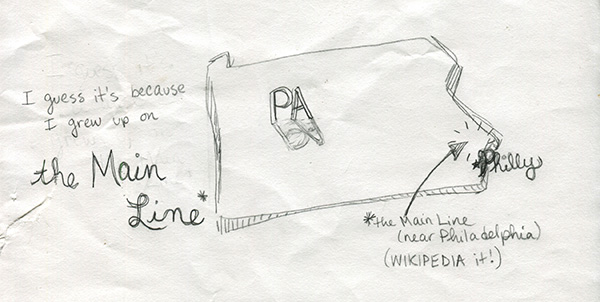 I guess it's because
I grew up on
the Main
Line*
PA
*Philly
*the Main Line
(near Philadelphia)
(WIKIPEDIA it!)